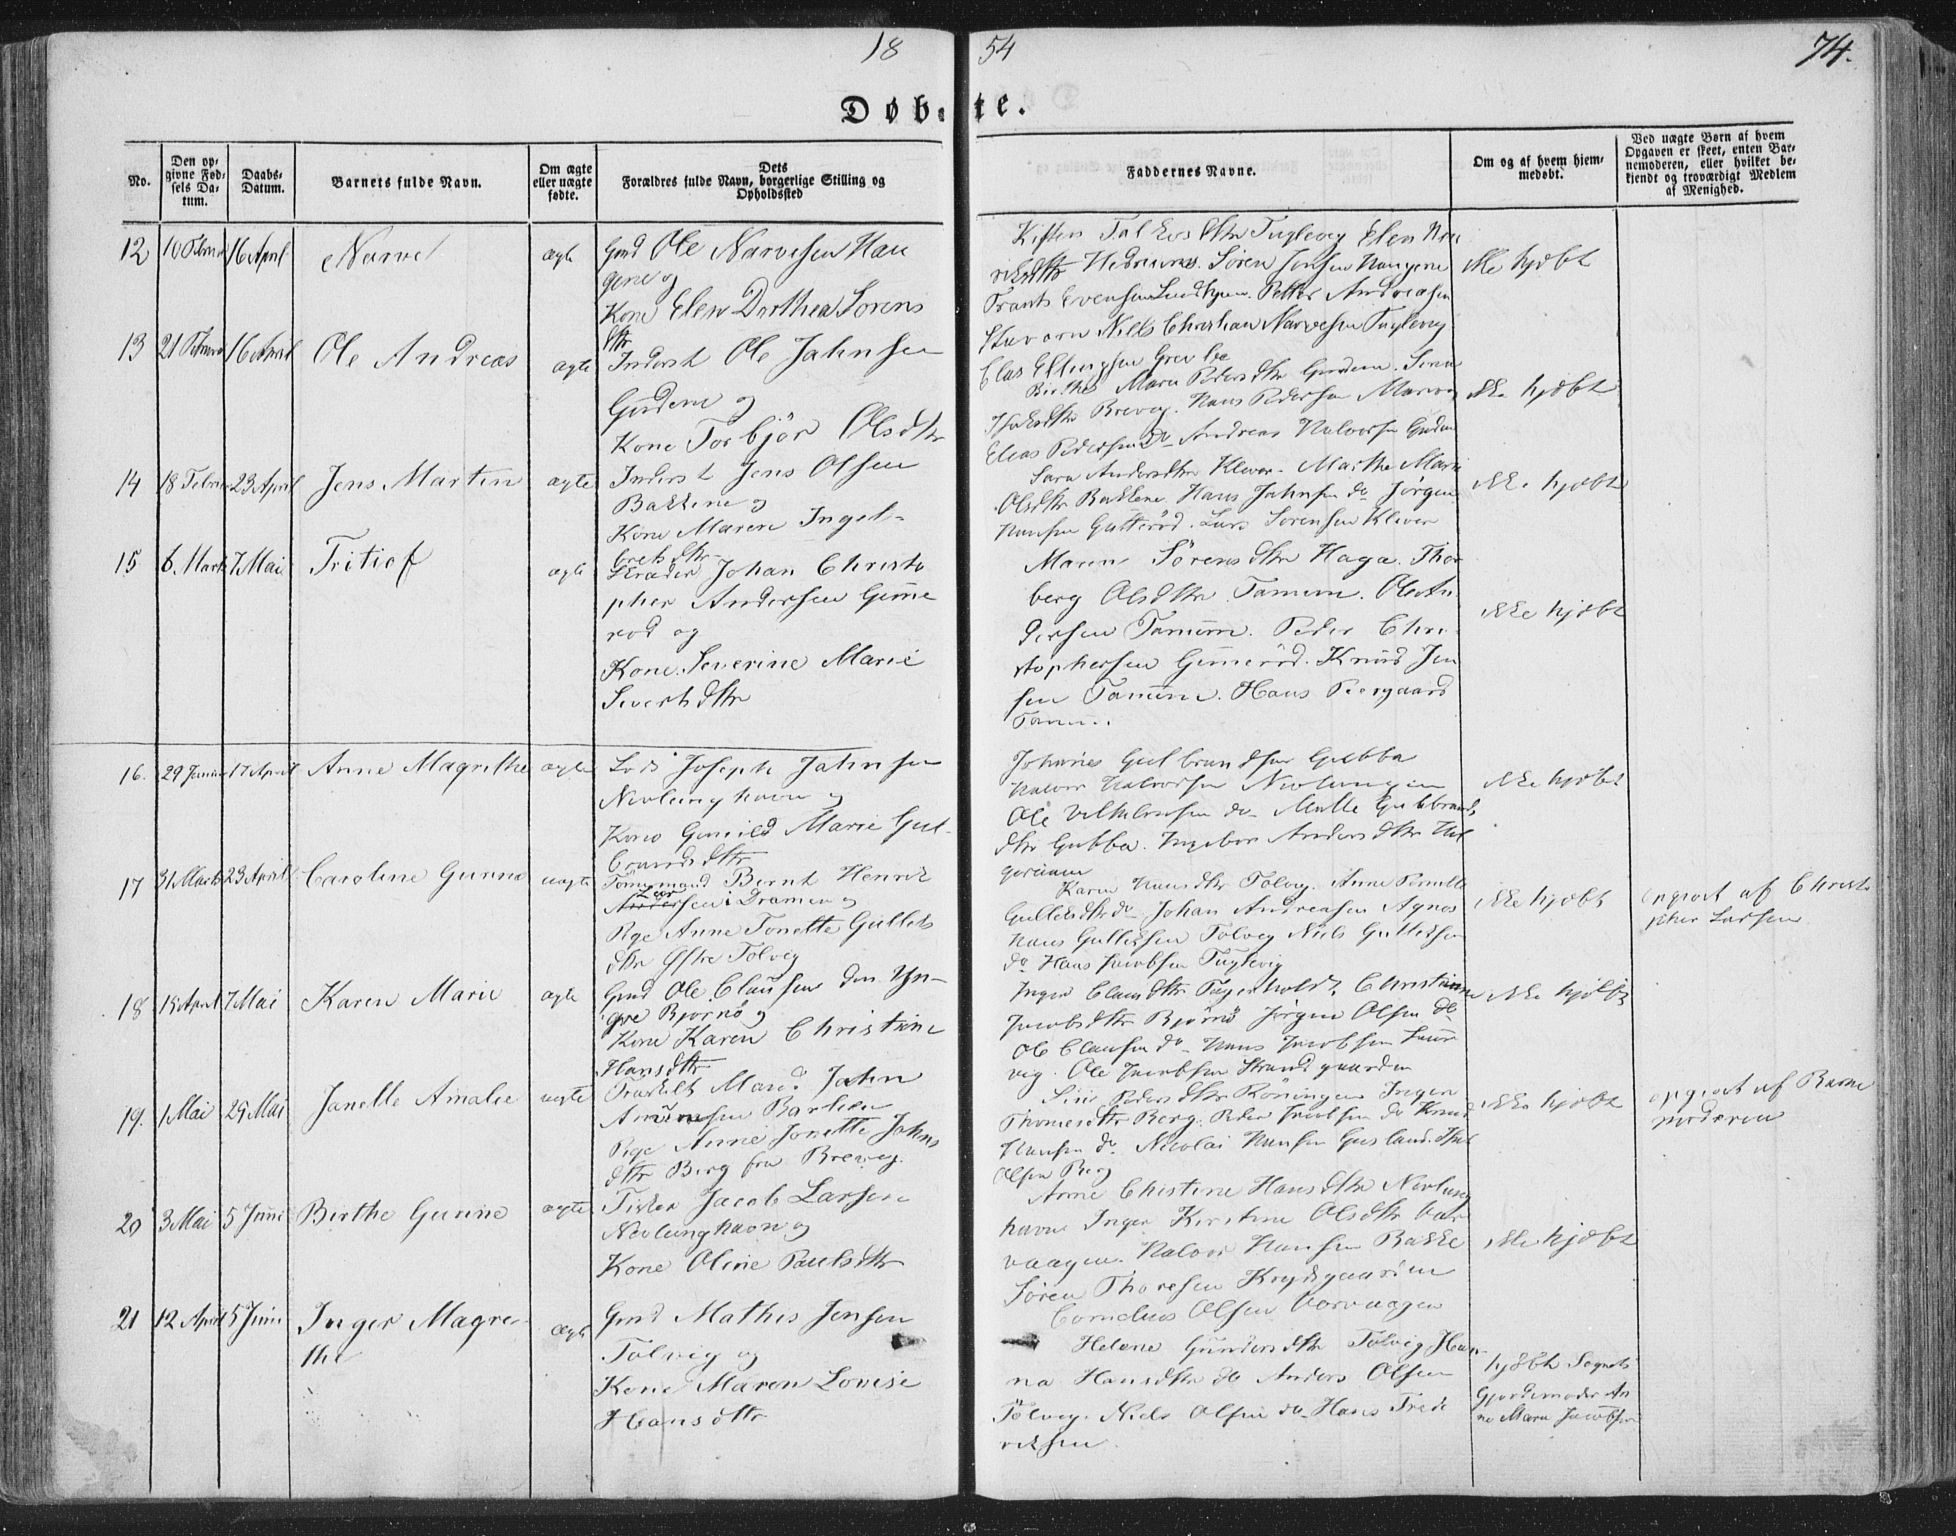 18 54
74.
Døbte.
No.
Den opgivne Fødsels Datum.
Daabs-Datum.
Barnets fulde Navn.
Om ægte eller uægte fødte.
Dets Forældres fulde Navn, borgerlige Stilling og Opholdssted
Faddernes Navne.
Om og af hvem hjemmedøbt.
Ved uægte Børn af hvem Opgaven er skeet, enten Barnemoderen, eller hvilket bekjendt og troværdigt Medlem af Menighed.
12 10 Februar 16 April Narve ægte
Gmd Ole Narvesen Hau
gene og
Kone Elen Dorthea Sörens
dtr
Dtr Fuglevig Elen
Sören Jensen Haugene
Frants Evensen Petter Andreasen
Niels Christian Narvesen Fuglevig
ikke hjdøbt
13 21 Februar 16 April Ole Andreas ægte
Inderst Ole Jahnsen
Gudem og
Kone Torbjör Olsdtr
Elas Ellingsen Grevle
Birthe Maria Pedersdtr Gudem.
Brevig. Hans Pedersen
Elias Pedersen do Andreas Halvorsen Gudem
ikke hjdøbt
14 18 Februar 23 April Jens Martin ægte
Inderst Jens Olsen
Bakkene og
Kone Maren Ingel-
bretsdtr
Sara Andersdtr Klever. Marthe Maria
Olsdtr Bakkene. Hans Jahnsen do Jörgen
Hansen Lars Sörensen Klever
ikke hjdøbt
15 6 Marts 7 Mai Fritiof ægte
Johan Christo
pher Andersen Gumme
röd og
Kone Severine Marie
Sivertsdtr
Maren Sörensdtr Haga. Thor
berg Olsdtr Tanum. Ole An
dersen Tanum. Peder Chri
stophersen Gummeröd. Knud Jen
sen Tanum. Hans Peergaard
Tanum.
ikke hjdøbt
16. 29 Januar 17 April Anne Magrethe ægte
Lods Joseph Jahnsen
Nevlunghavn og
Kone Gunild Marie Gul-
brandsdtr
Johanes Gulbrandsen Gubba
Halvor Halvorsen Nevlungen
Ole Vilhelmsen do Malle Gulbrands
dtr Gubba. Ingebor Andersdtr Hel
geroaen
ikke hjdøbt
17 31 Marts 23 April Caroline Gurine uægte
Tömmermand Bernt Henrik
Andersen i Dramen og
Pige Anne Tonette Gulliks
dtr Östre Tolvig
Karen Hansdtr Tolvig. Anne Pernille
Gulliksdtr do Johan Andreasen Agnes
Hans Gulliksen Tolvig Niels Gulliksen
do Hans Jacobsen Fuglevig
ikke hjdøbt
opgivet af Christo
pher Larsen
18 15 April 7 Mai Karen Marie ægte
Gmd Ole Clausen den Yn-
gre Bjornö og
Kone Karen Christine
Hansdtr
Inger Clausdtr Christiane
Jacobsdtr Bjornö Jörgen Olsen do
Ole Clausen do Hans Jacobsen Laur
vig. Ole Jacobsen Strandgaarden
ikke hjdøbt
19. 1 Mai 29 Mai Janelle Amalie uægte
Fraskilt Mand Jahn
Amunsen Barlien
Pige Anne Jonette Jahns
dtr Berg fra Brevig.
Siri Pedersdtr Röningen Inger
Thomesdtr Berg. Peder Jacobsen do Knud
Hansen do Nicolai Hansen
Olsen Berg
ikke hjdøbt
opgivet af Barne
moderen
20 3 Mai 5 Juni Birthe Gurine ægte
Fisker Jacob Larsen
Nevlunghavn og
Kone Oline Paulsdtr
Anne Christine Hansdtr Nevlung
havn Inger Kirstine Olsdtr Var
vaagen. Halvor Hansen Bakke
Sören Thoresen Krydsgaarden
Cornelius Olsen Varvaagen
ikke hjdøbt
21 12 April 5 Juni Inger Magre-
the ægte
Gmd Mathis Jensen
Tolvig og
Kone Maren Lovise
Hansdtr
Helene Gundersdtr Tolvig Han
na Hansdtr do Anders Olsen
Tolvig. Niels Olsen do Hans Frede
riksen.
hjdøbt Sognets
Gjordemoder An
ne Maria Jacobsen